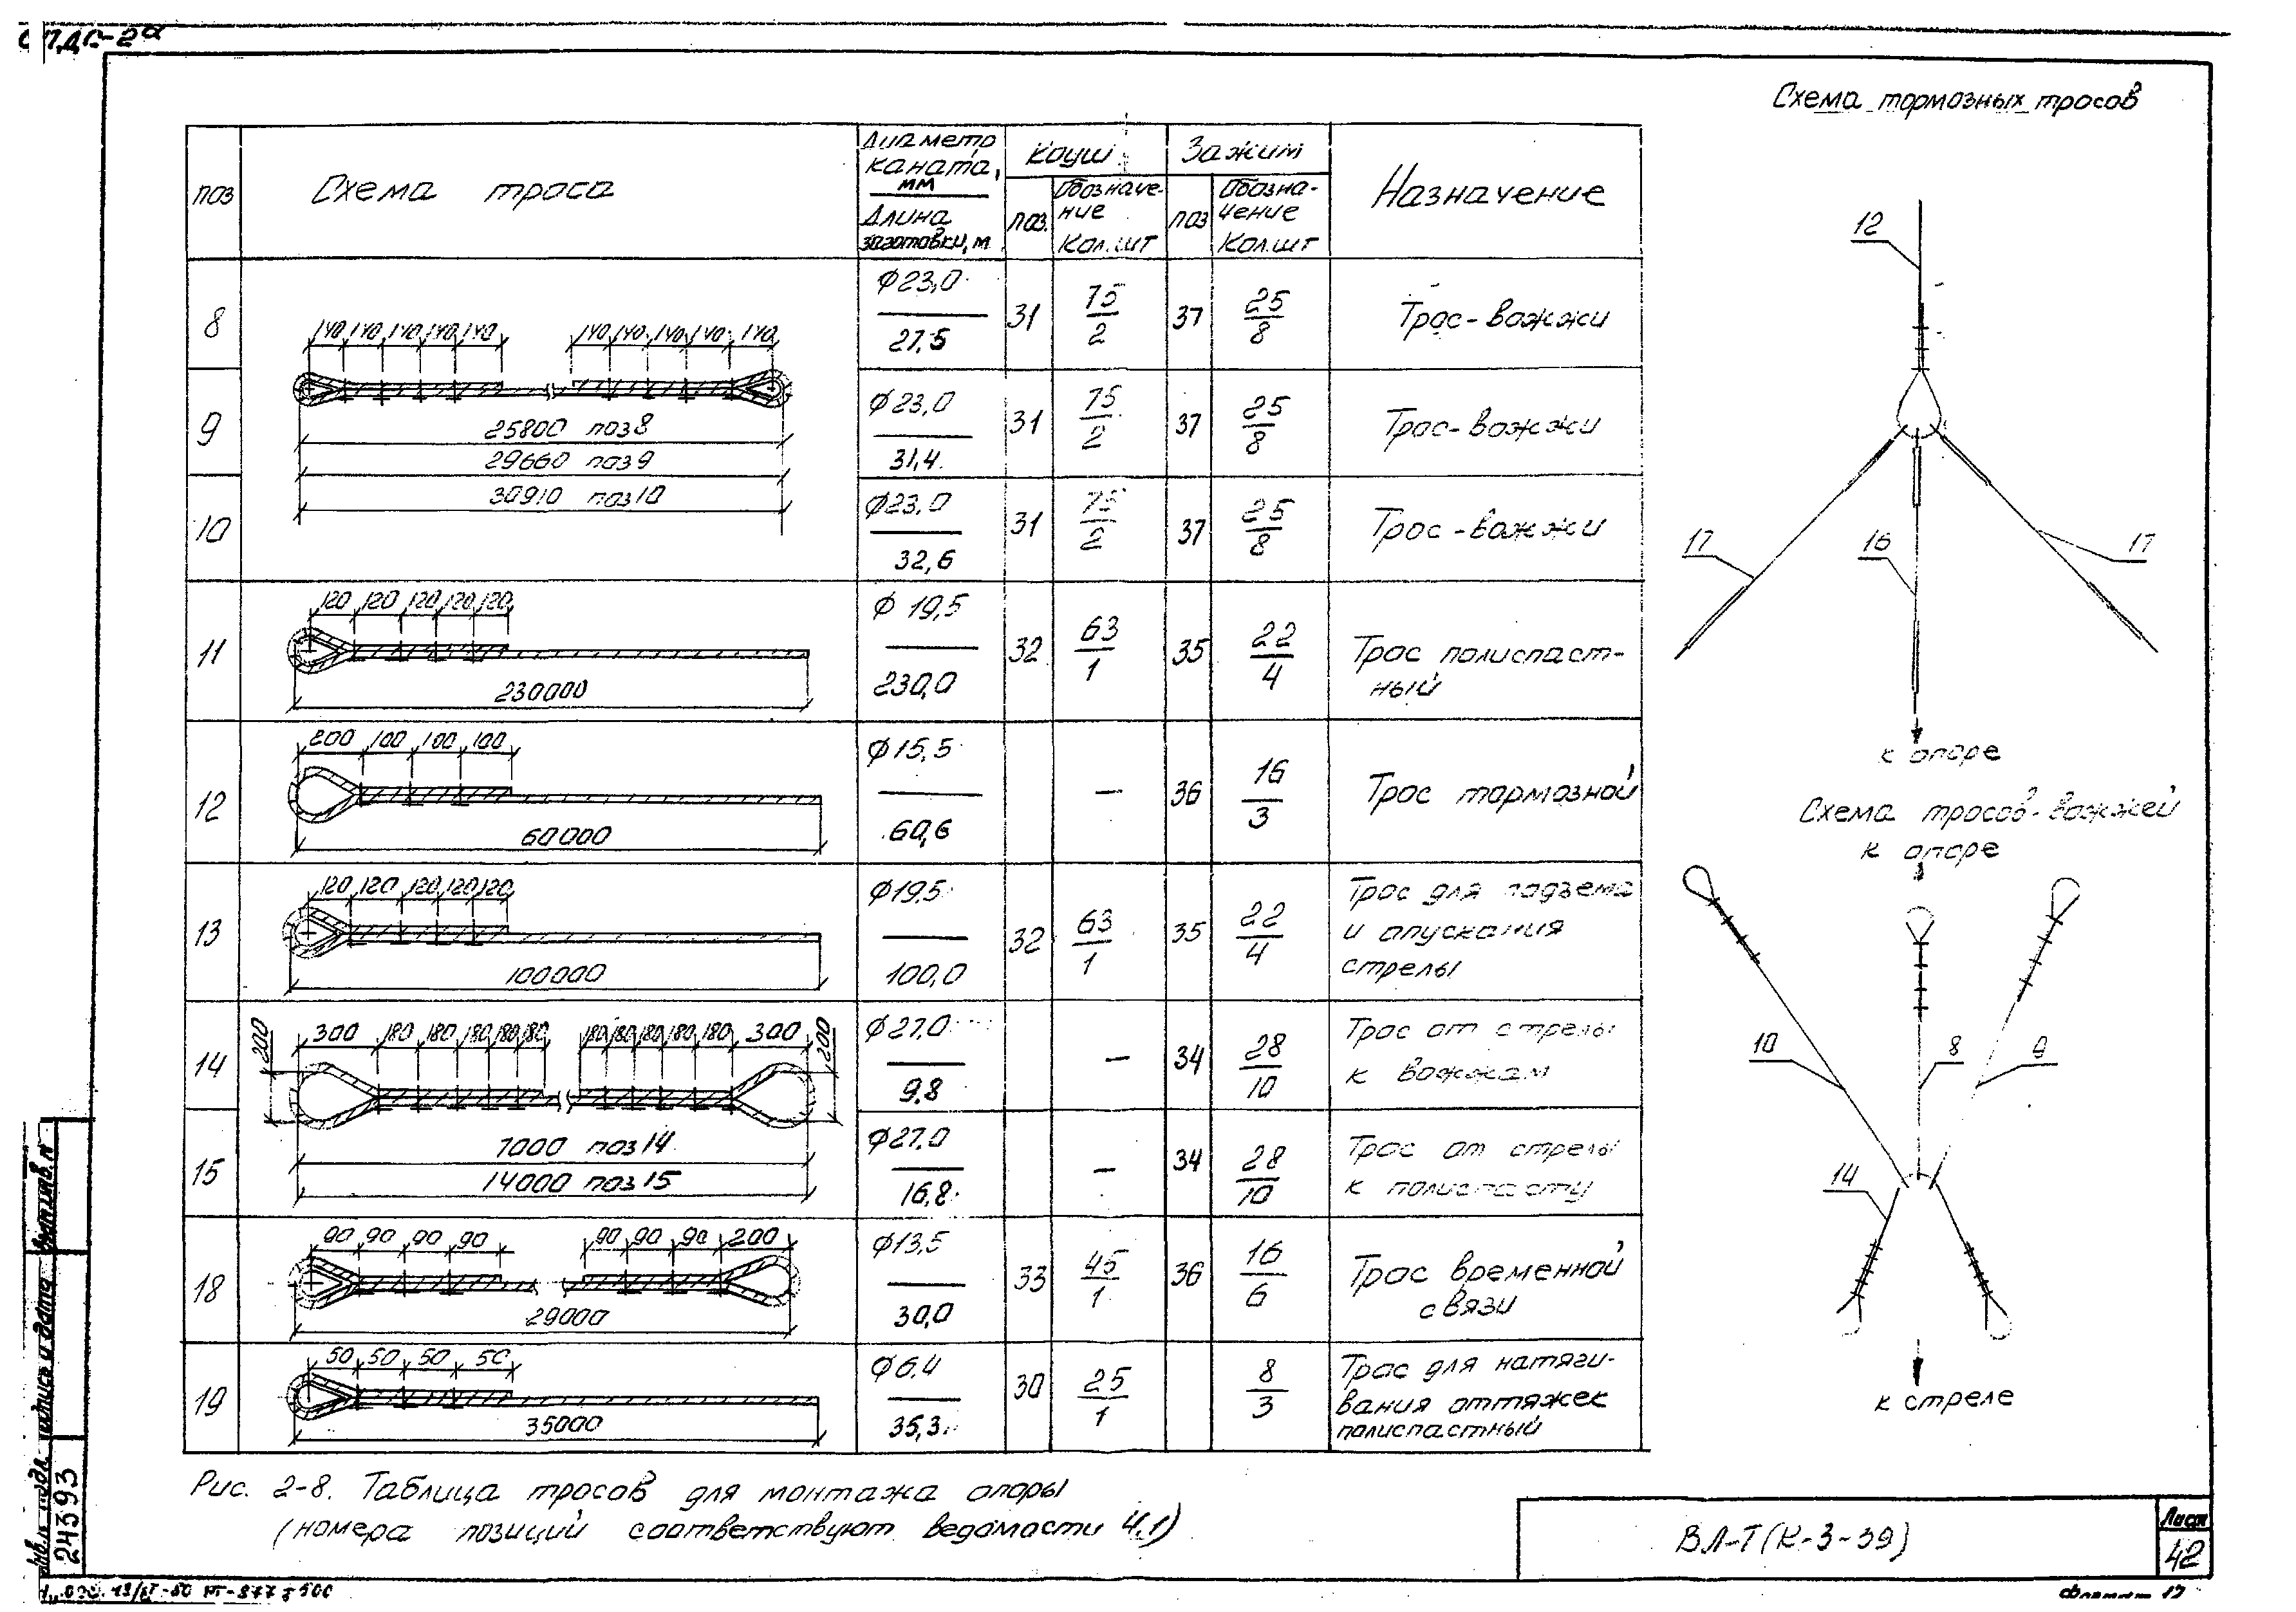 Схема тормозных тросов
поз
Схема троса
Диаметр каната, мм
Длина заготовки, м
Коуш
поз.
Обозначение
Кол. шт
Зажим
поз
Обозначение
Кол. шт
Назначение
8
140 140 140 140 140 140 140 140 140 140
25800 поз 8
ϕ23,0
27,5
31
75
2
37
25
8
Трос-вожжи
9
29660 поз 9
ϕ23,0
31,4
31
75
2
37
25
8
Трос-вожжи
10
30910 поз 10
ϕ23,0
32,6
31
75
2
37
25
8
Трос-вожжи
11
120 120 120 120 120
230000
ϕ 19,5
230,0
32
63
1
35
22
4
Трос полиспаст-
ный
12
200 100 100 100
60000
ϕ15,5
60,6
—
36
16
3
Трос тормозной
13
120 120 120 120 120
100000
ϕ19,5
100,0
32
63
1
35
22
4
Трос для подъема
и опускания
стрелы
14
200 300 180 180 180 180 180 180 180 180 180 180 300 200
7000 поз 14
ϕ27,0
9,8
—
34
28
10
Трос от стрелы
к вожжам
15
14000 поз 15
ϕ27,0
16,8
—
34
28
10
Трос от стрелы
к полиспасту
18
90 90 90 90 90 90 90 200
29000
ϕ13,5
30,0
33
45
1
36
16
6
Трос временной
связи
19
50 50 50 50
35000
ϕ6,4
35,3
30
25
1
8
3
Трос для натяги-
вания оттяжек
полиспастный
12
17 16 17
к опоре
Схема тросов-вожжей
к опоре
10 8 9
14
к стреле
Рис. 2-8. Таблица тросов для монтажа опоры
(номера позиций соответствуют ведомости 4.1)
ВЛ-Т(К-3-39)
Лист
42
Инв. № подл.
24393
Подпись и дата
Взам. инв. №
Формат 12